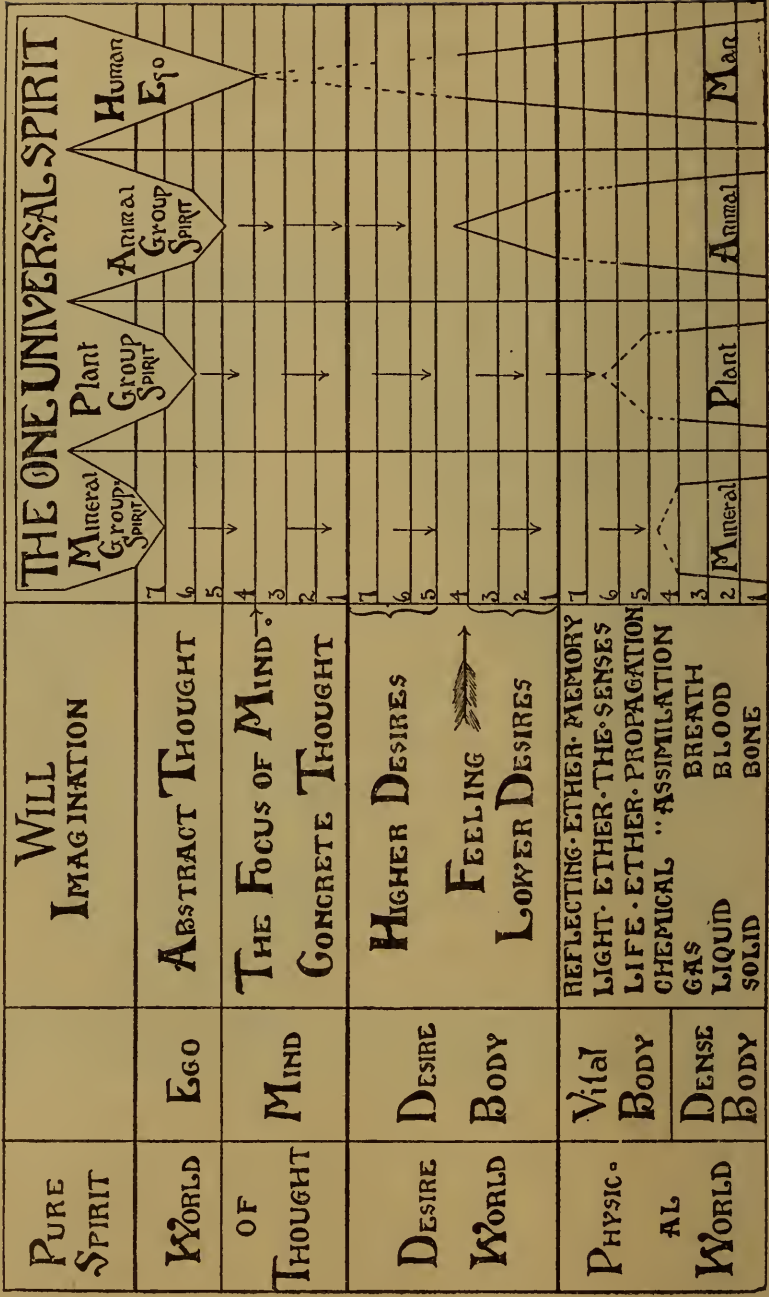 PURE
SPIRIT
WORLD
OF
THOUGHT
DESIRE
WORLD
PHYSIC-
AL
WORLD
EGO
MIND
DESIRE
BODY
Vital
BODY
DENSE
BODY
WILL
IMAGINATION
ABSTRACT THOUGHT
THE FOCUS OF MIND
CONCRETE THOUGHT
HIGHER DESIRES
FEELING
LOWER DESIRES
REFLECTING·ETHER·MEMORY
LIGHT·ETHER·THE·SENSES
LIFE·ETHER·PROPAGATION
CHEMICAL " ASSIMILATION
GAS BREATH
LIQUID BLOOD
SOLID BONE
7
6
5
4
3
2
1
7
6
5
4
3
2
1
7
6
5
4
3
2
1
THE ONE UNIVERSAL SPIRIT
Mineral
Group
SPIRIT
Plant
Group
SPIRIT
Animal
Group
SPIRIT
Human
Ego
Mineral
Plant
Animal
Man